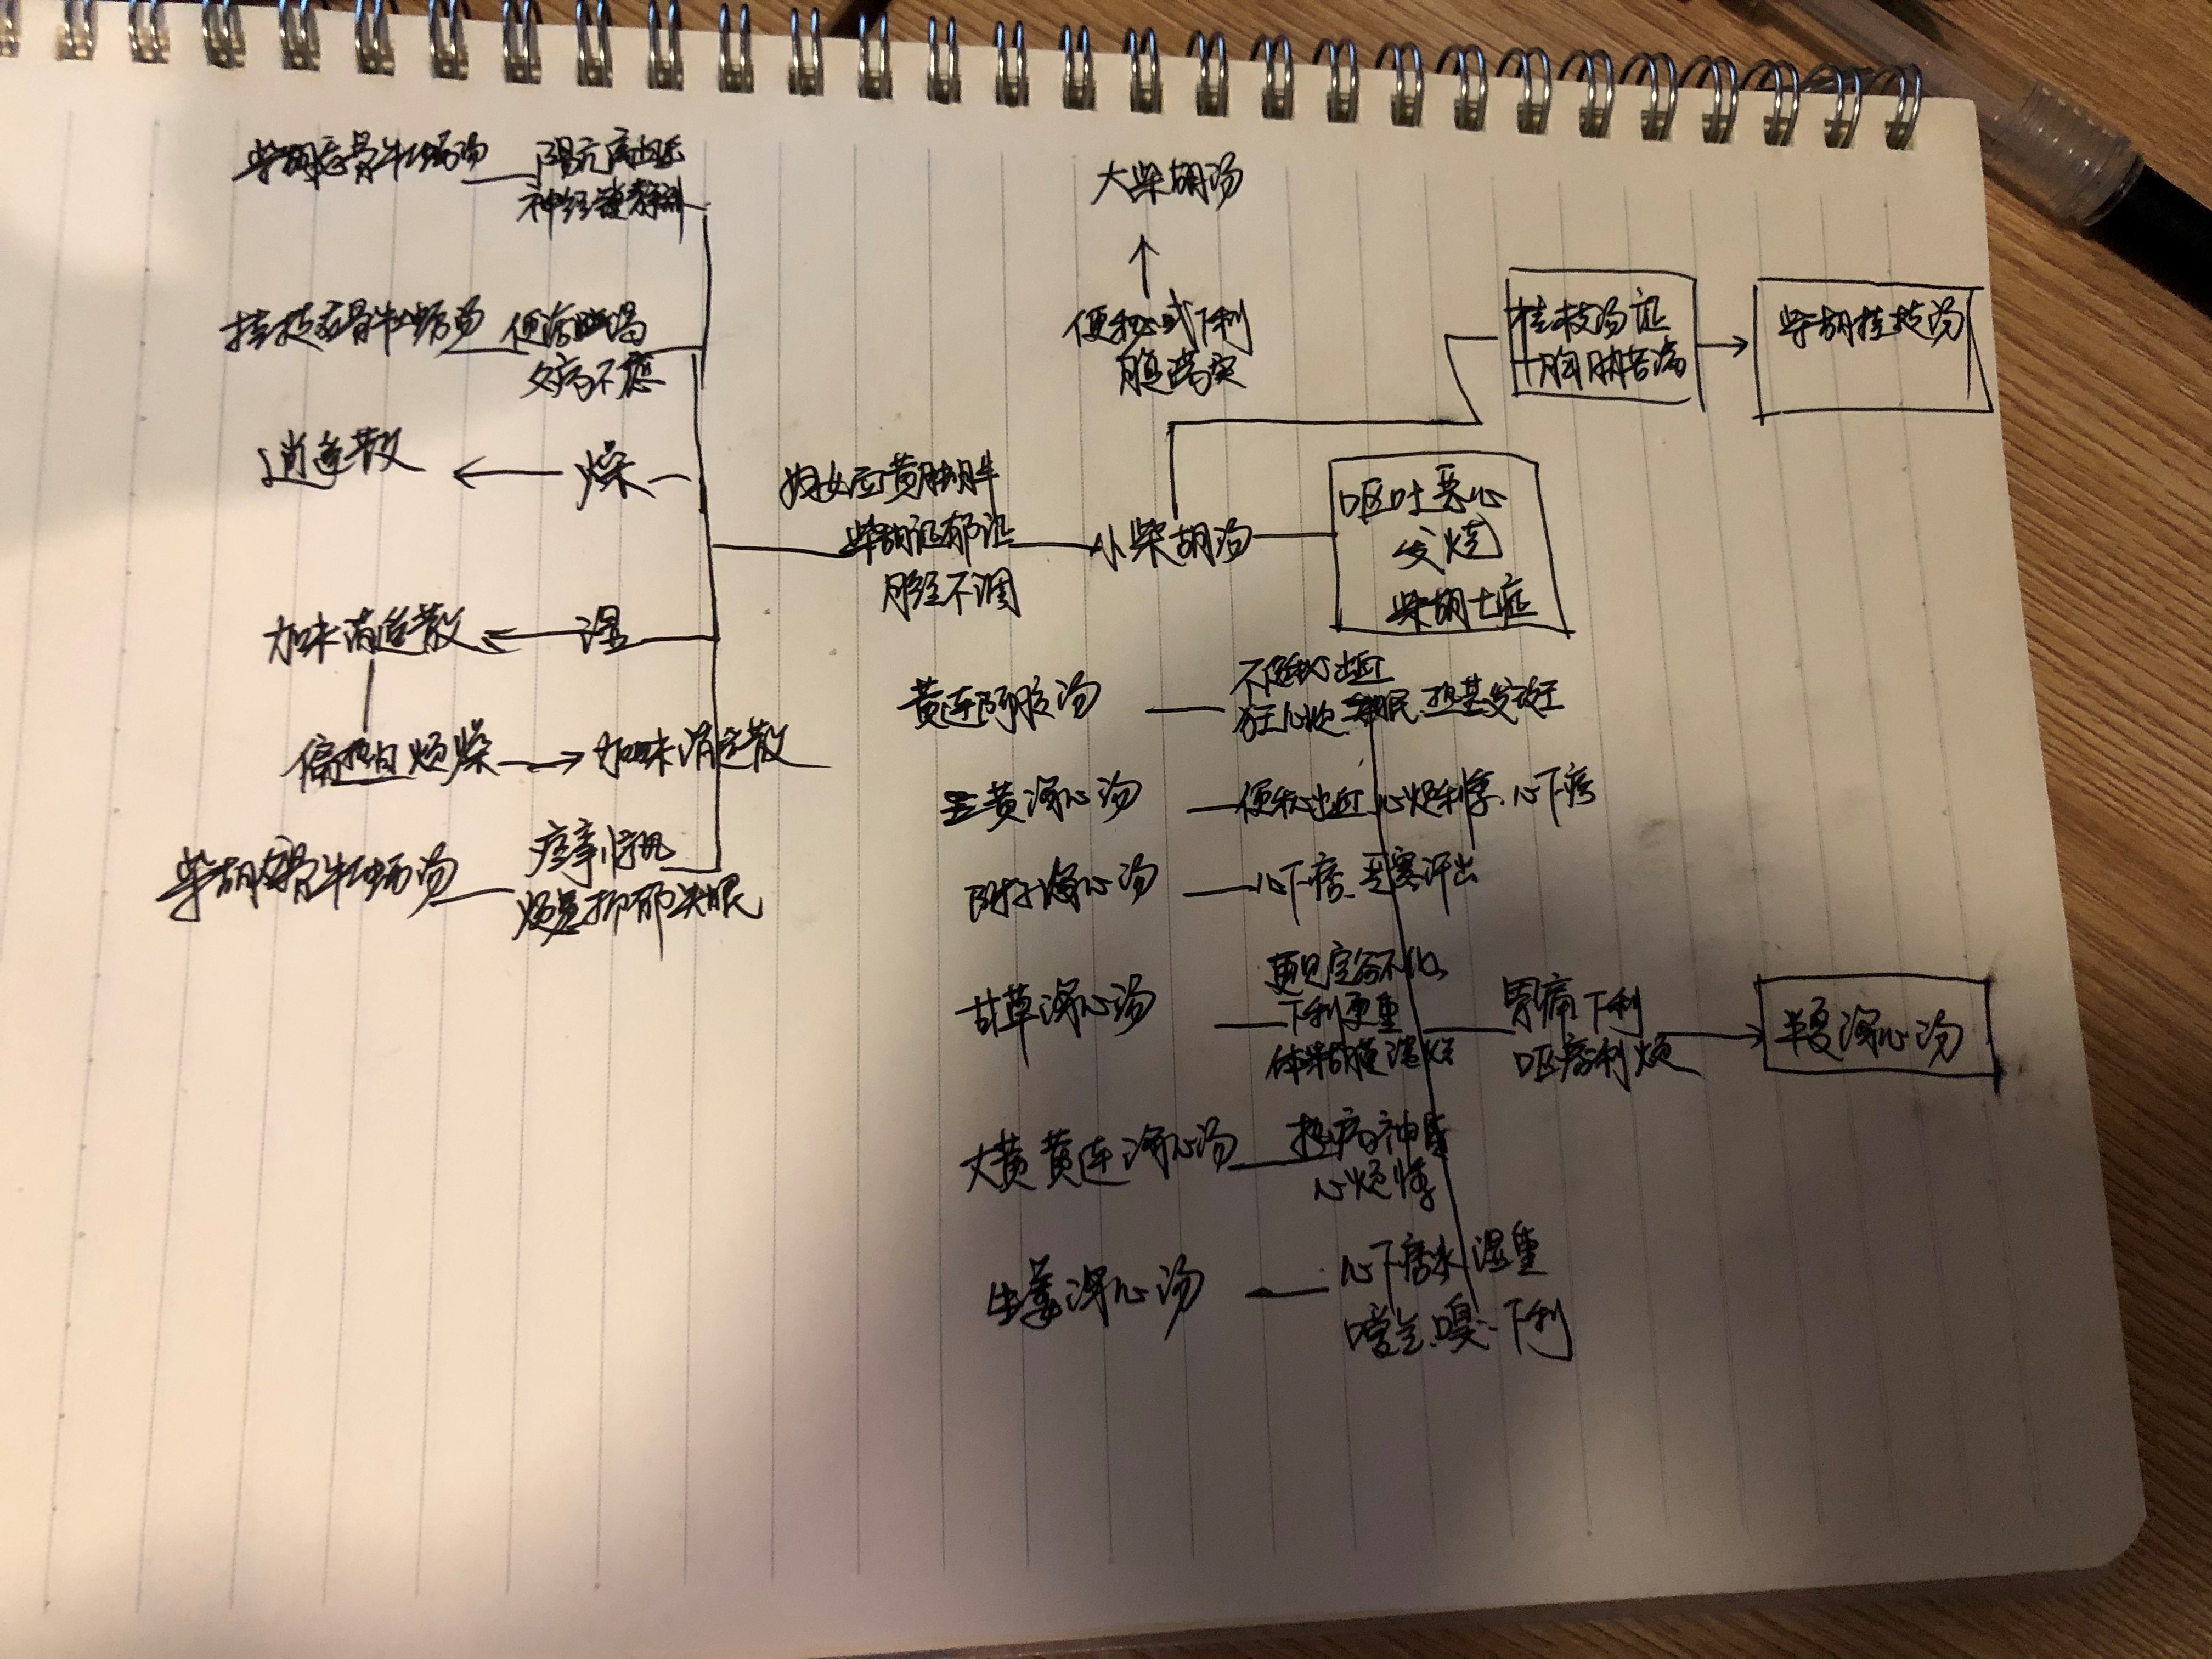 柴胡龙骨牡蛎汤
阳亢高血压
神经
大柴胡汤
便秘或下利
腹满实
桂枝汤证
+胸胁苦满
柴胡桂枝汤
桂枝龙骨牡蛎汤
便溏
久病不愈
逍遥散
燥
妇女
柴胡证郁证
月经不调
小柴胡汤
呕吐恶心
发烧
柴胡七症
加味逍遥散
湿
偏热 烦燥
加味逍遥散
柴胡龙骨牡蛎汤
烦惊抑郁失眠
黄连阿胶汤
出血
心烦 眠 热甚发斑
三黄泻心汤
便秘出血 心烦悸、心下痞
附子泻心汤
心下痞、恶寒汗出
甘草泻心汤
更见完谷不化
下利更重
胃痛下利
呕痞利烦
半夏泻心汤
大黄黄连泻心汤
热病神昏
心烦悸
生姜泻心汤
心下痞水湿重
下利